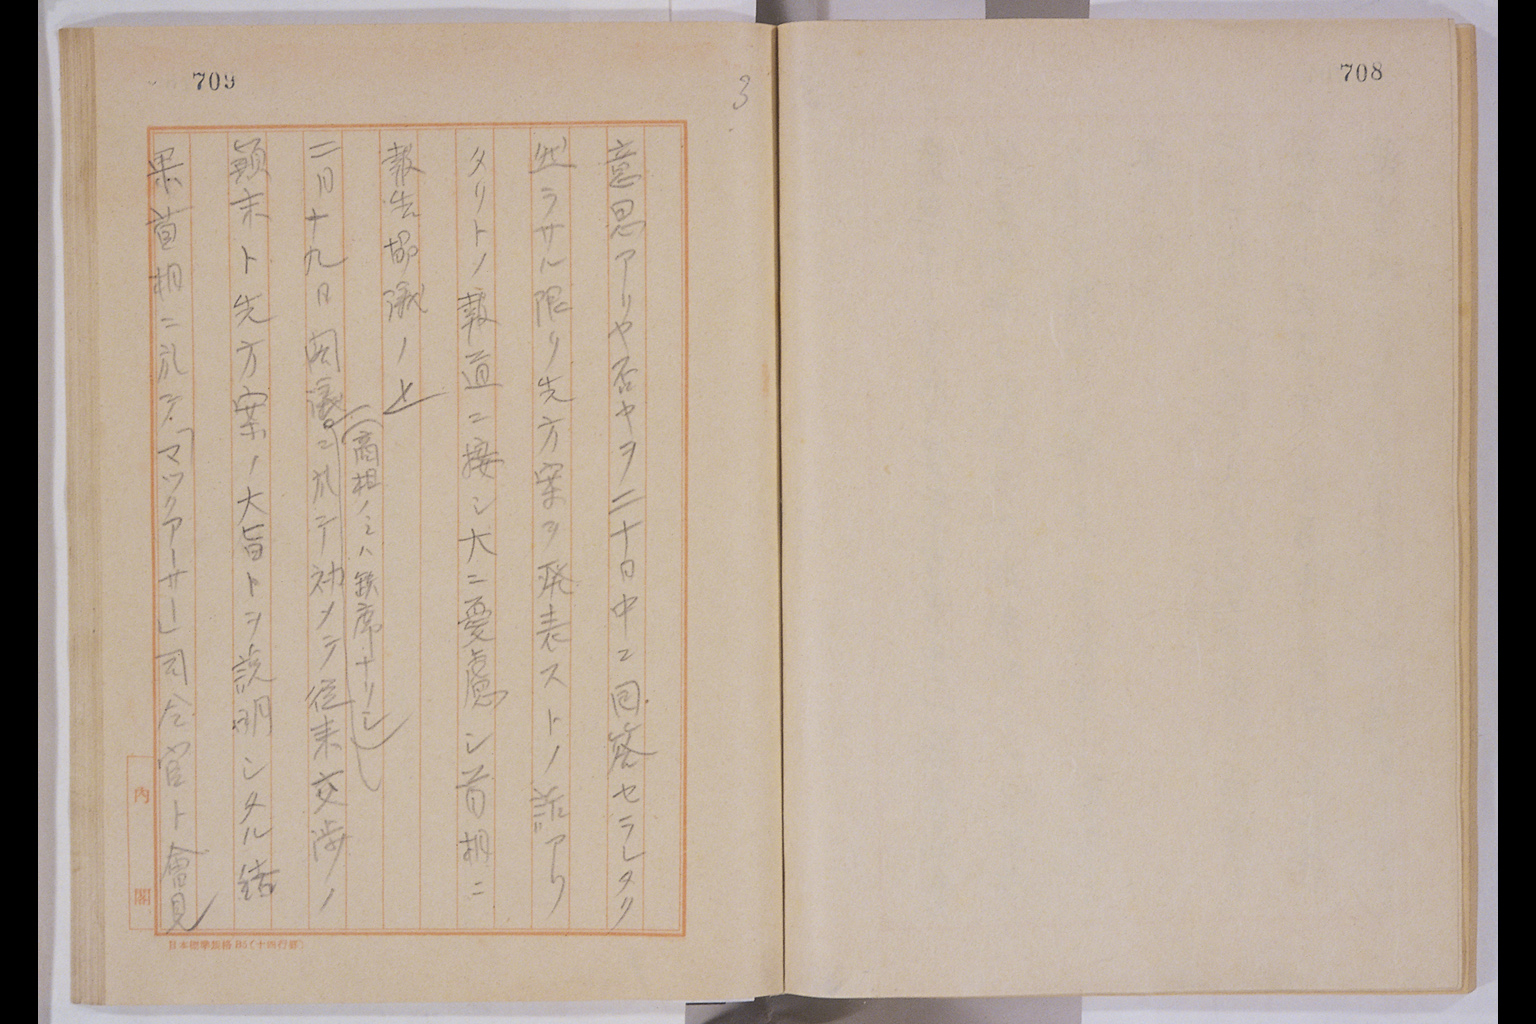 708
709
3
意思アリヤ否ヤヲ二十日中ニ回答セラレタク
然ラサル限リ先方案ヲ発表ストノ話アリ
タリトノ報道ニ接シ大ニ憂慮シ首相ニ
報告協議ノ上
(商相ノミハ欠席ナリシ)
二月十九日閣議ニ於テ初メテ従来交渉ノ
顛末ト先方案ノ大旨トヲ説明シタル結
果首相ニ於テ「マックアーサー」司令官ト會見
内閣
日本標準規格B5(十四行罫)